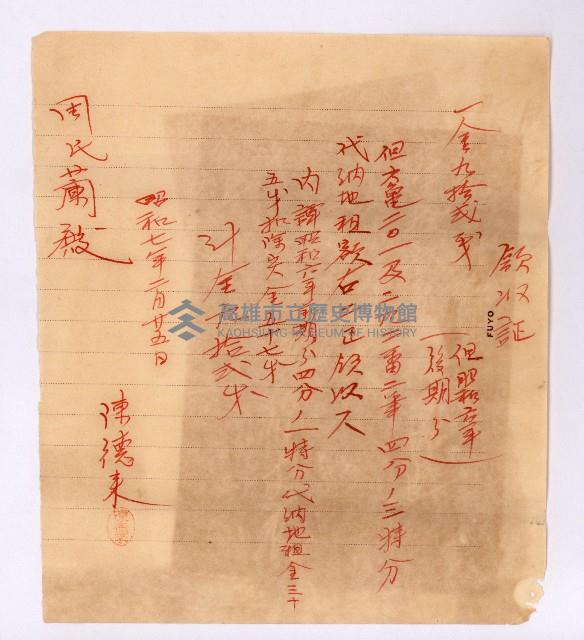 領收証
一金九拾弐戋
但昭和六年
後期分
FUYO
但方亀二〇一及二九二番二筆四分ノ三特分
代納地租額右正領收ス
内譯昭和六年前期分四分ノ一特分代納地租金三十
五戋扣除实金五十七戋
計金九拾弐戋
昭和七年二月廿五日
陳德来
周氏蘭殿
高雄市立歷史博物館
KAOHSIUNG MUSEUM OF HISTORY